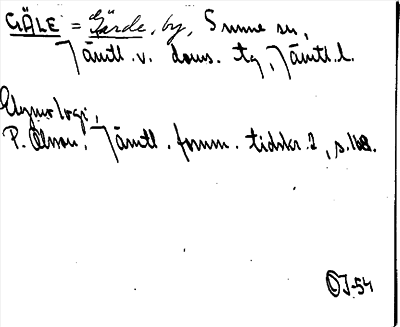 GÄLE = Gärde, by, Sunne sn,
Jämtl. v. doms. tg, Jämtl. l.
Etymologi,
P. Olsson, Jämtl. fornm. tidskr. 2, s.
OJ-54